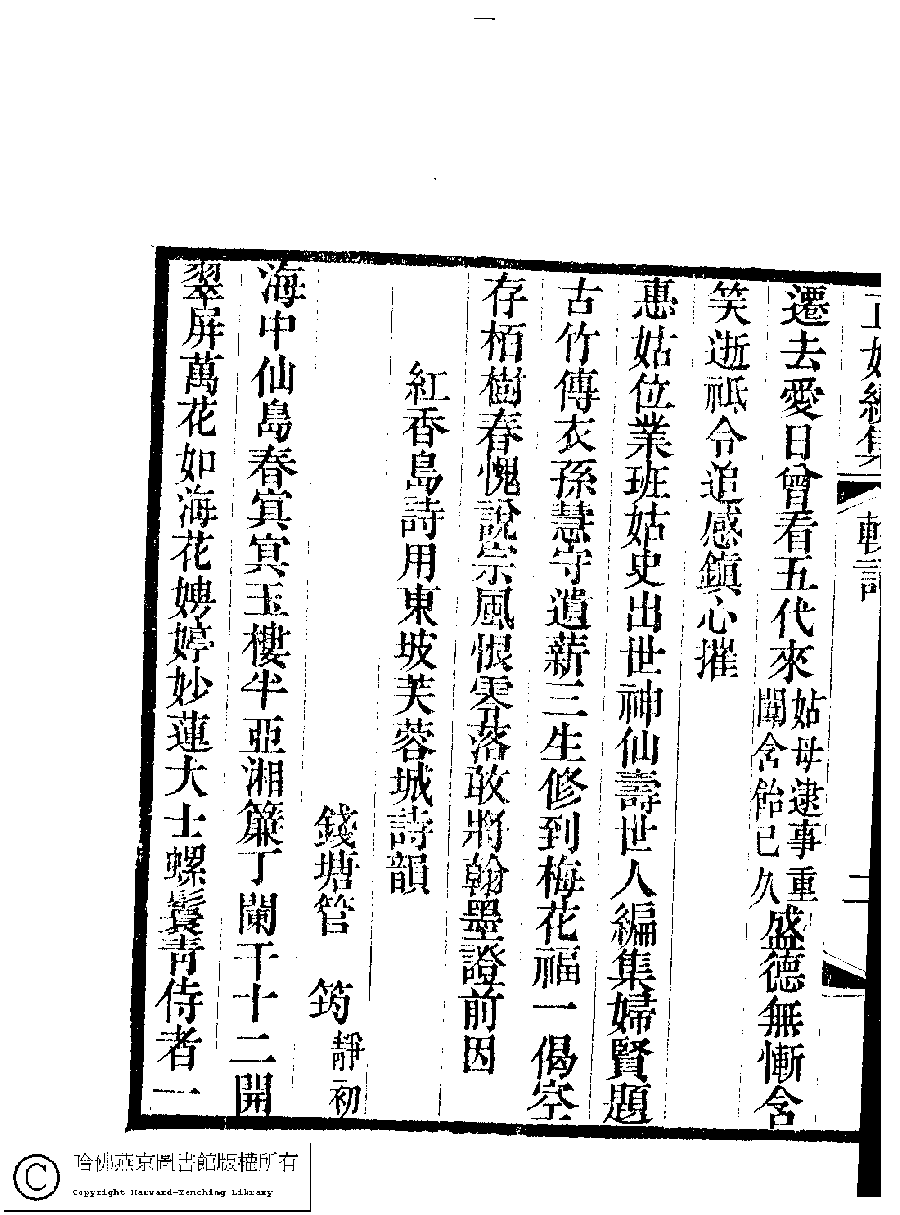 遷去愛日曾看五代來姑母逮事重闈含飴已久盛德無慚含
笑逝祇令追感鎮心摧
惠姑位業班姑史出世神仙壽世人編集婦賢題
古竹傳衣孫慧守遺薪三生修到梅花福一偈空
存栢樹春愧說宗風恨零落敢將翰墨證前因
紅香島詩用東坡芙蓉城詩韻
錢塘管 筠靜初
海中仙島春寘寘玉樓半亞湘簾丁闌干十二開
翠屏萬花如海花娉婷妙蓮大士螺鬟青侍者一
哈佛燕京圖書館版權所有
Copyright Harvard-Yenching Library